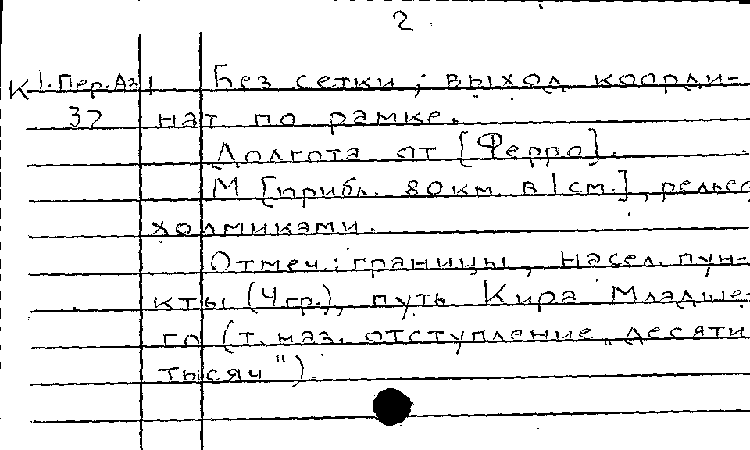 2.
К 1. Пер. Аз1 Без сетки; выход коорди-
37 нат по рамке.
Долгота от [Ферро].
М [прибл. 80 км. в 1 см.], рельеф
холмиками.
Отмеч.: границы, насел. пун-
кты (4 гр.), путь Кира Младше-
го (т. наз. отступление „десяти
тысяч").